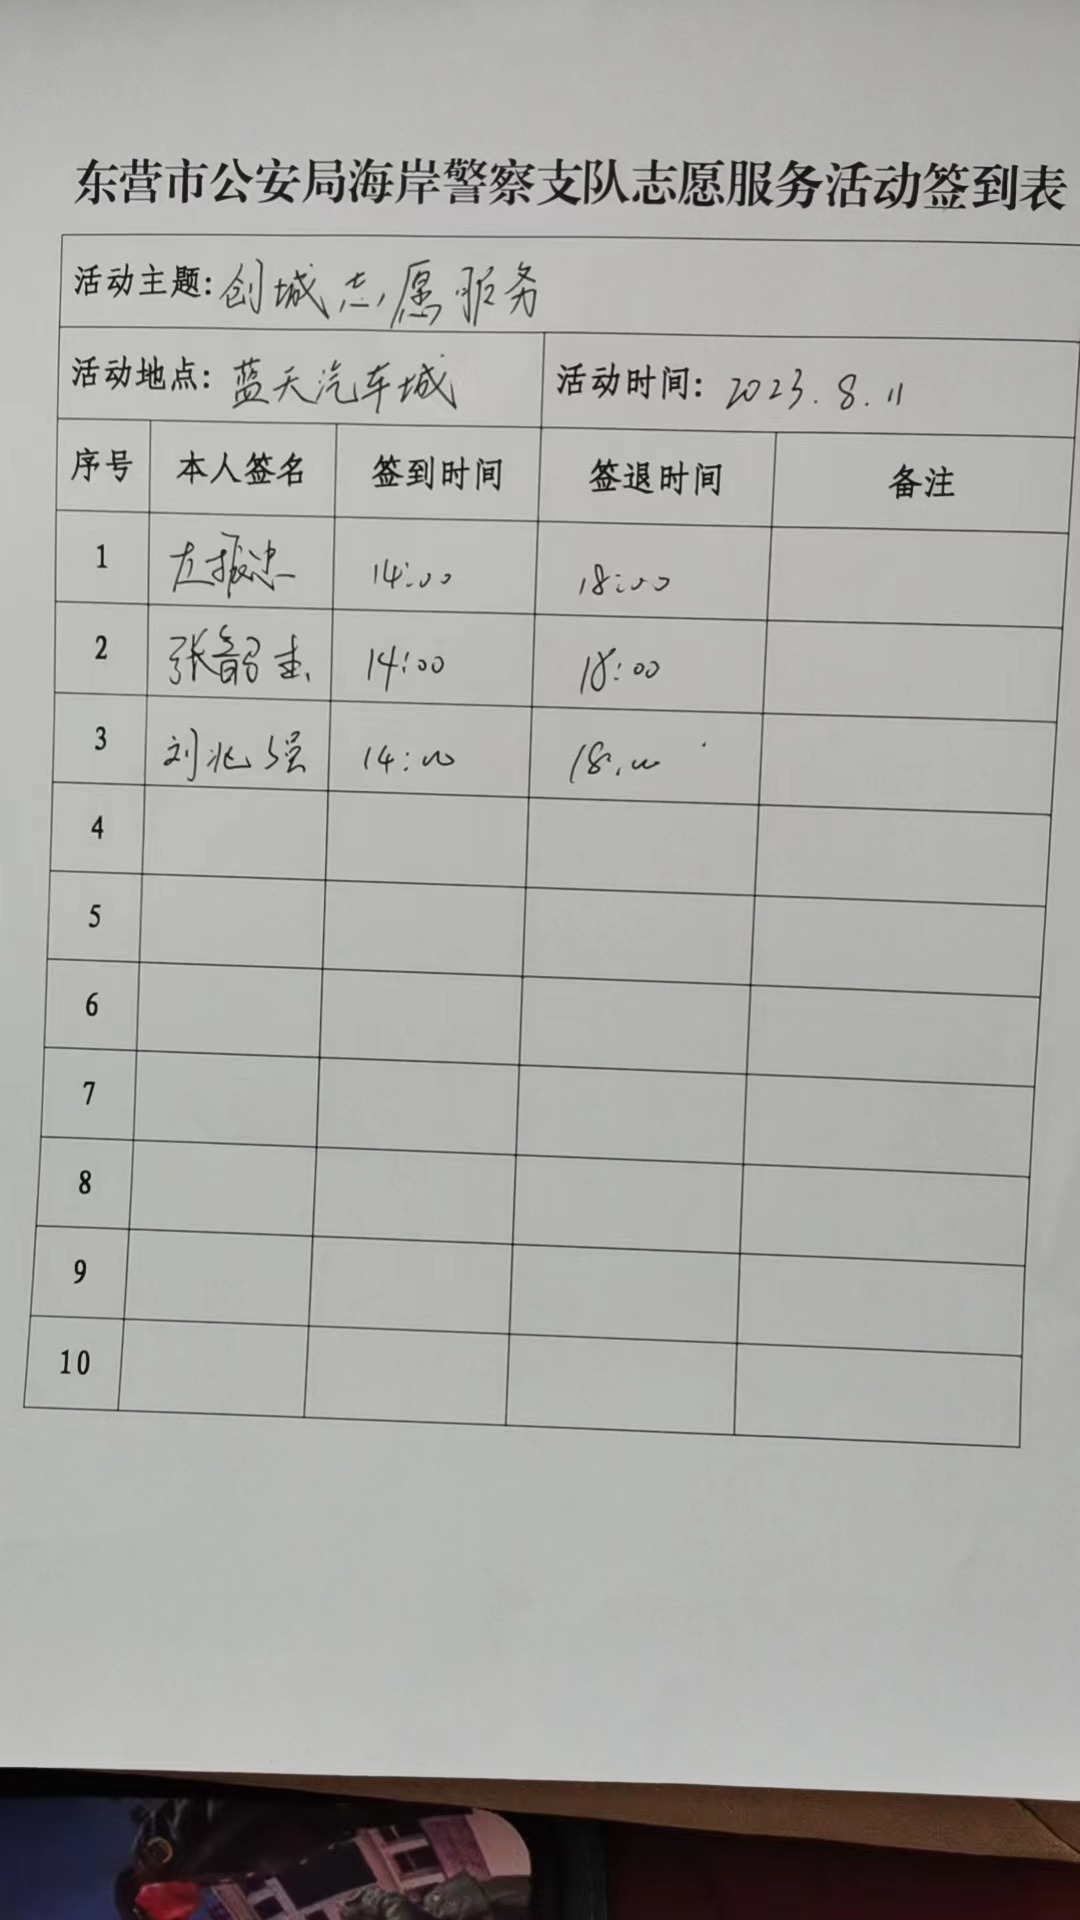 东营市公安局海岸警察支队志愿服务活动签到表
活动主题: 创城志愿服务
活动地点: 蓝天汽车城 活动时间: 2023.8.11
序号 本人签名 签到时间 签退时间 备注
1 左振忠 14:00 18:00
2 张韶 14:00 18:00
3 刘兆强 14:00 18:00
4
5
6
7
8
9
10